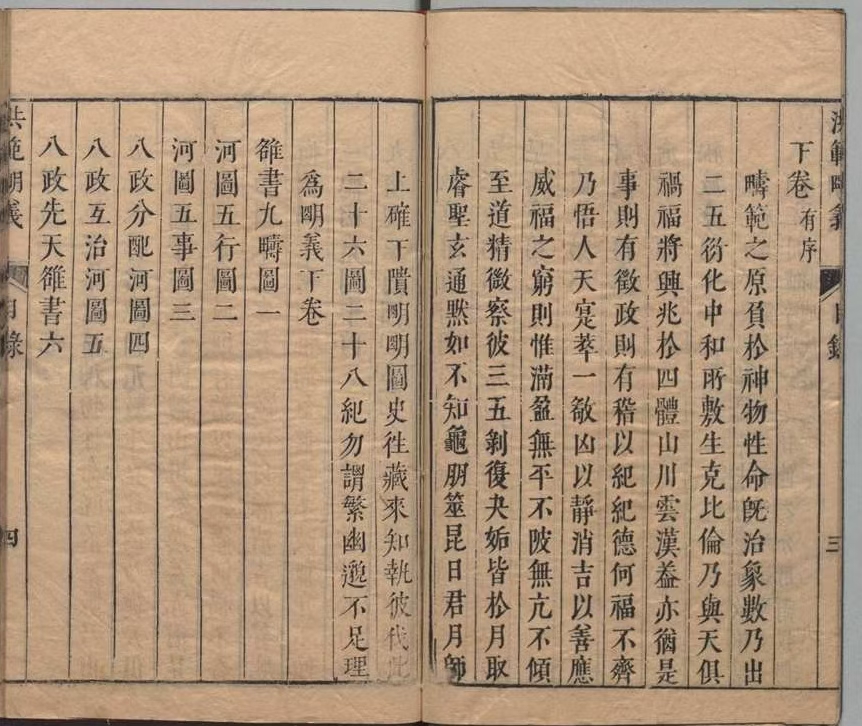 洪範明義
目錄
三
下卷 有序
疇範之原負於神物性命既治象數乃出
二五衍化中和所敷生克比倫乃與天俱
禍福將興兆於四體山川雲漢益亦猶是
事則有徵政則有稽以紀紀德何福不齊
乃悟人天寔萃一敬凶以靜消吉以善應
威福之窮則惟滿盈無平不陂無亢不傾
至道精微察彼三五剝復夬姤皆於月取
睿聖玄通默如不知龜朋筮昆日君月師
上確下隤明明圖史徃藏來知執彼伐此
二十六圖二十八紀勿謂繁幽邈不足理
為明義下卷
雒書九疇圖一
河圖五行圖二
河圖五事圖三
八政分配河圖四
八政互治河圖五
八政先天雒書六
洪範明義
目錄
四